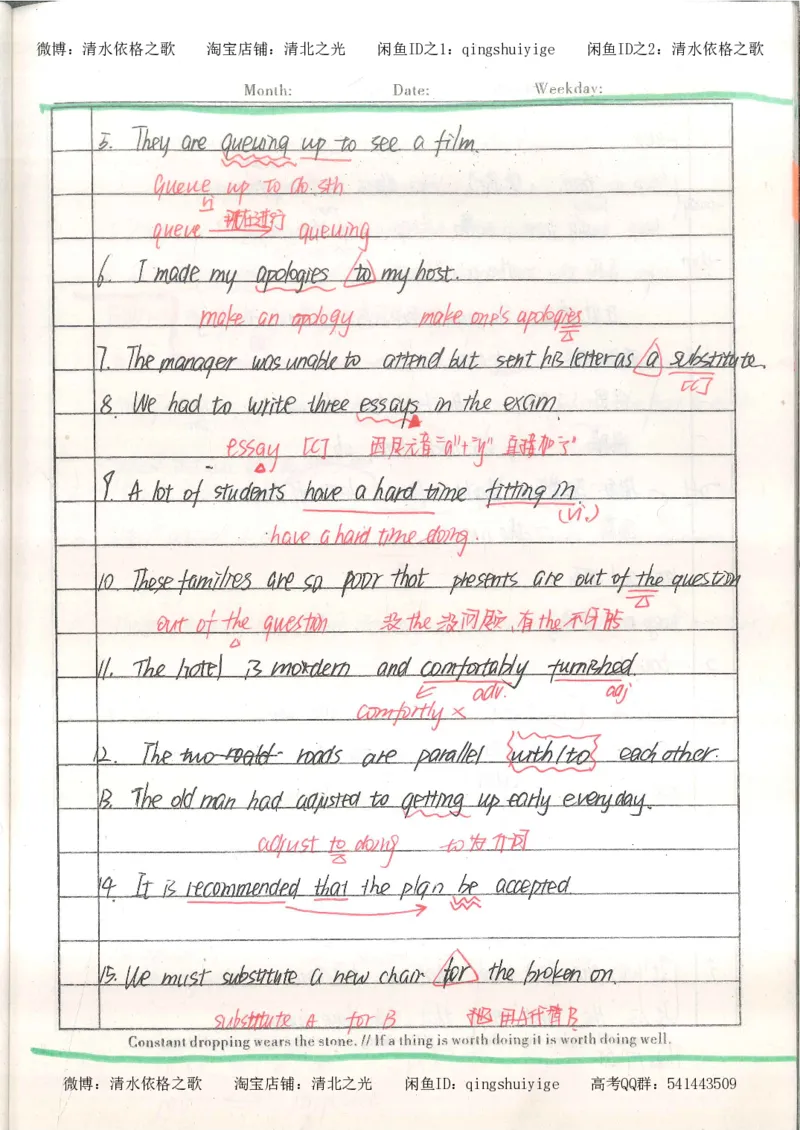 微博：清水依格之歌 淘宝店铺：清北之光 闲鱼ID之1：qingshuiyige 闲鱼ID之2：清水依格之歌
Month: Date: Weekday:
5. They are queuing up to see a film.
queue up to do sth
queue 现在进行 queuing
6. I made my apologies to my host.
make an apology make one's apologies
7. The manager was unable to attend but sent his letter as a substitute.
[C]
8. We had to write three essays in the exam.
essay [C] 因是元音"a"+"y" 直接加"s"
9. A lot of students have a hard time fitting in.
(vi.)
have a hard time doing.
10. These families are so poor that presents are out of the question
out of the question 没the没问题,有the不可能
11. The hotel is mordern and comfortably furnished.
adv. adj
comfortly ×
12. The two roald roads are parallel with/to each other.
13. The old man had adjusted to getting up early everyday.
adjust to doing to为介词
14. It is recommended that the plan be accepted
15. We must substitute a new chair for the broken on.
substitute A for B 用A代替B
Constant dropping wears the stone. // If a thing is worth doing it is worth doing well.
微博：清水依格之歌 淘宝店铺：清北之光 闲鱼ID：qingshuiyige 高考QQ群：541443509